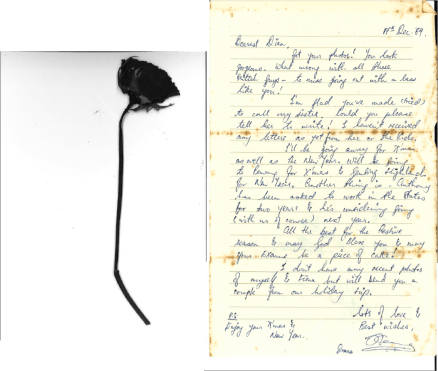 19th Dec '89.
Dearest Dian,
Got your photos! You look
gorgeous. What wrong with all those
British guys - to miss going out with a lass
like you!
I'm glad you've made (tried)
to call my sister. Could you please
tell her to write! I haven't received
any letters as yet from her or the kids.
I'll be going away for X'mas
as well as the New Year. Will be going
to Penang for X'mas & Genting Highlands
for New Year. Another thing is - Anthony
has been asked to work in the States
for two years & he's considering going
(with us of course) next year.
All the best for the festive
season & may God Bless you & may
your exams be a piece of cake!
I don't have any recent photos
of myself & but will send you a
couple from our holiday trip.
lots of love &
Best wishes,
PS
Enjoy your X'mas &
New Year.